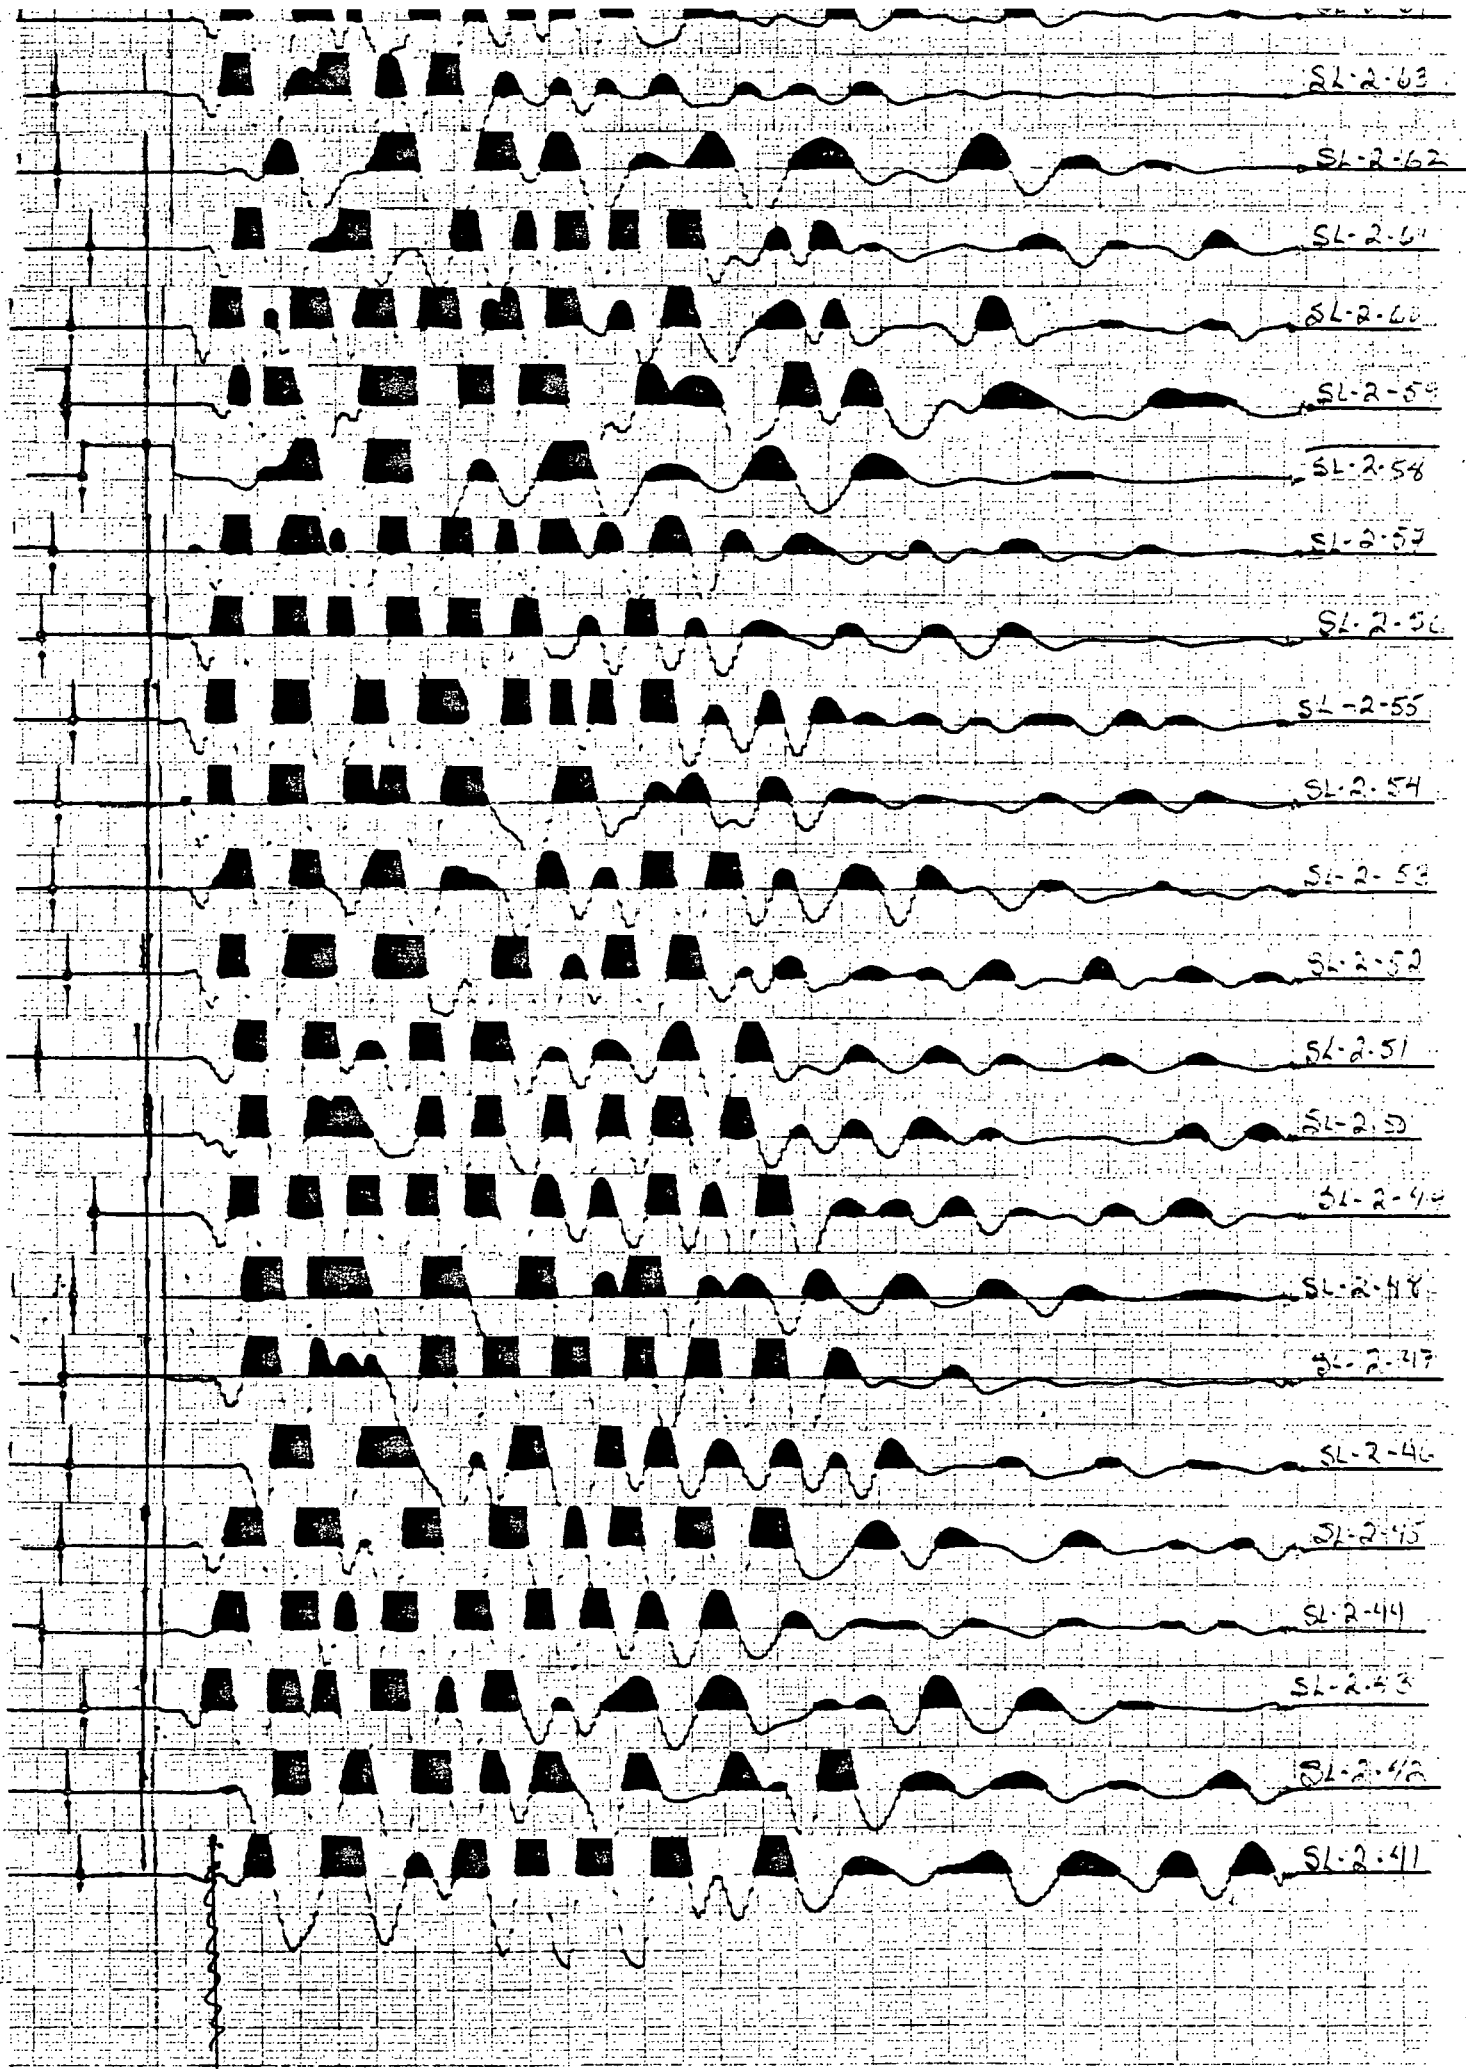 SL-2-63
SL-2-62
SL-2-61
SL-2-60
SL-2-59
SL-2-58
SL-2-57
SL-2-56
SL-2-55
SL-2-54
SL-2-53
SL-2-52
SL-2-51
SL-2-50
SL-2-49
SL-2-48
SL-2-47
SL-2-46
SL-2-45
SL-2-44
SL-2-43
SL-2-42
SL-2-41